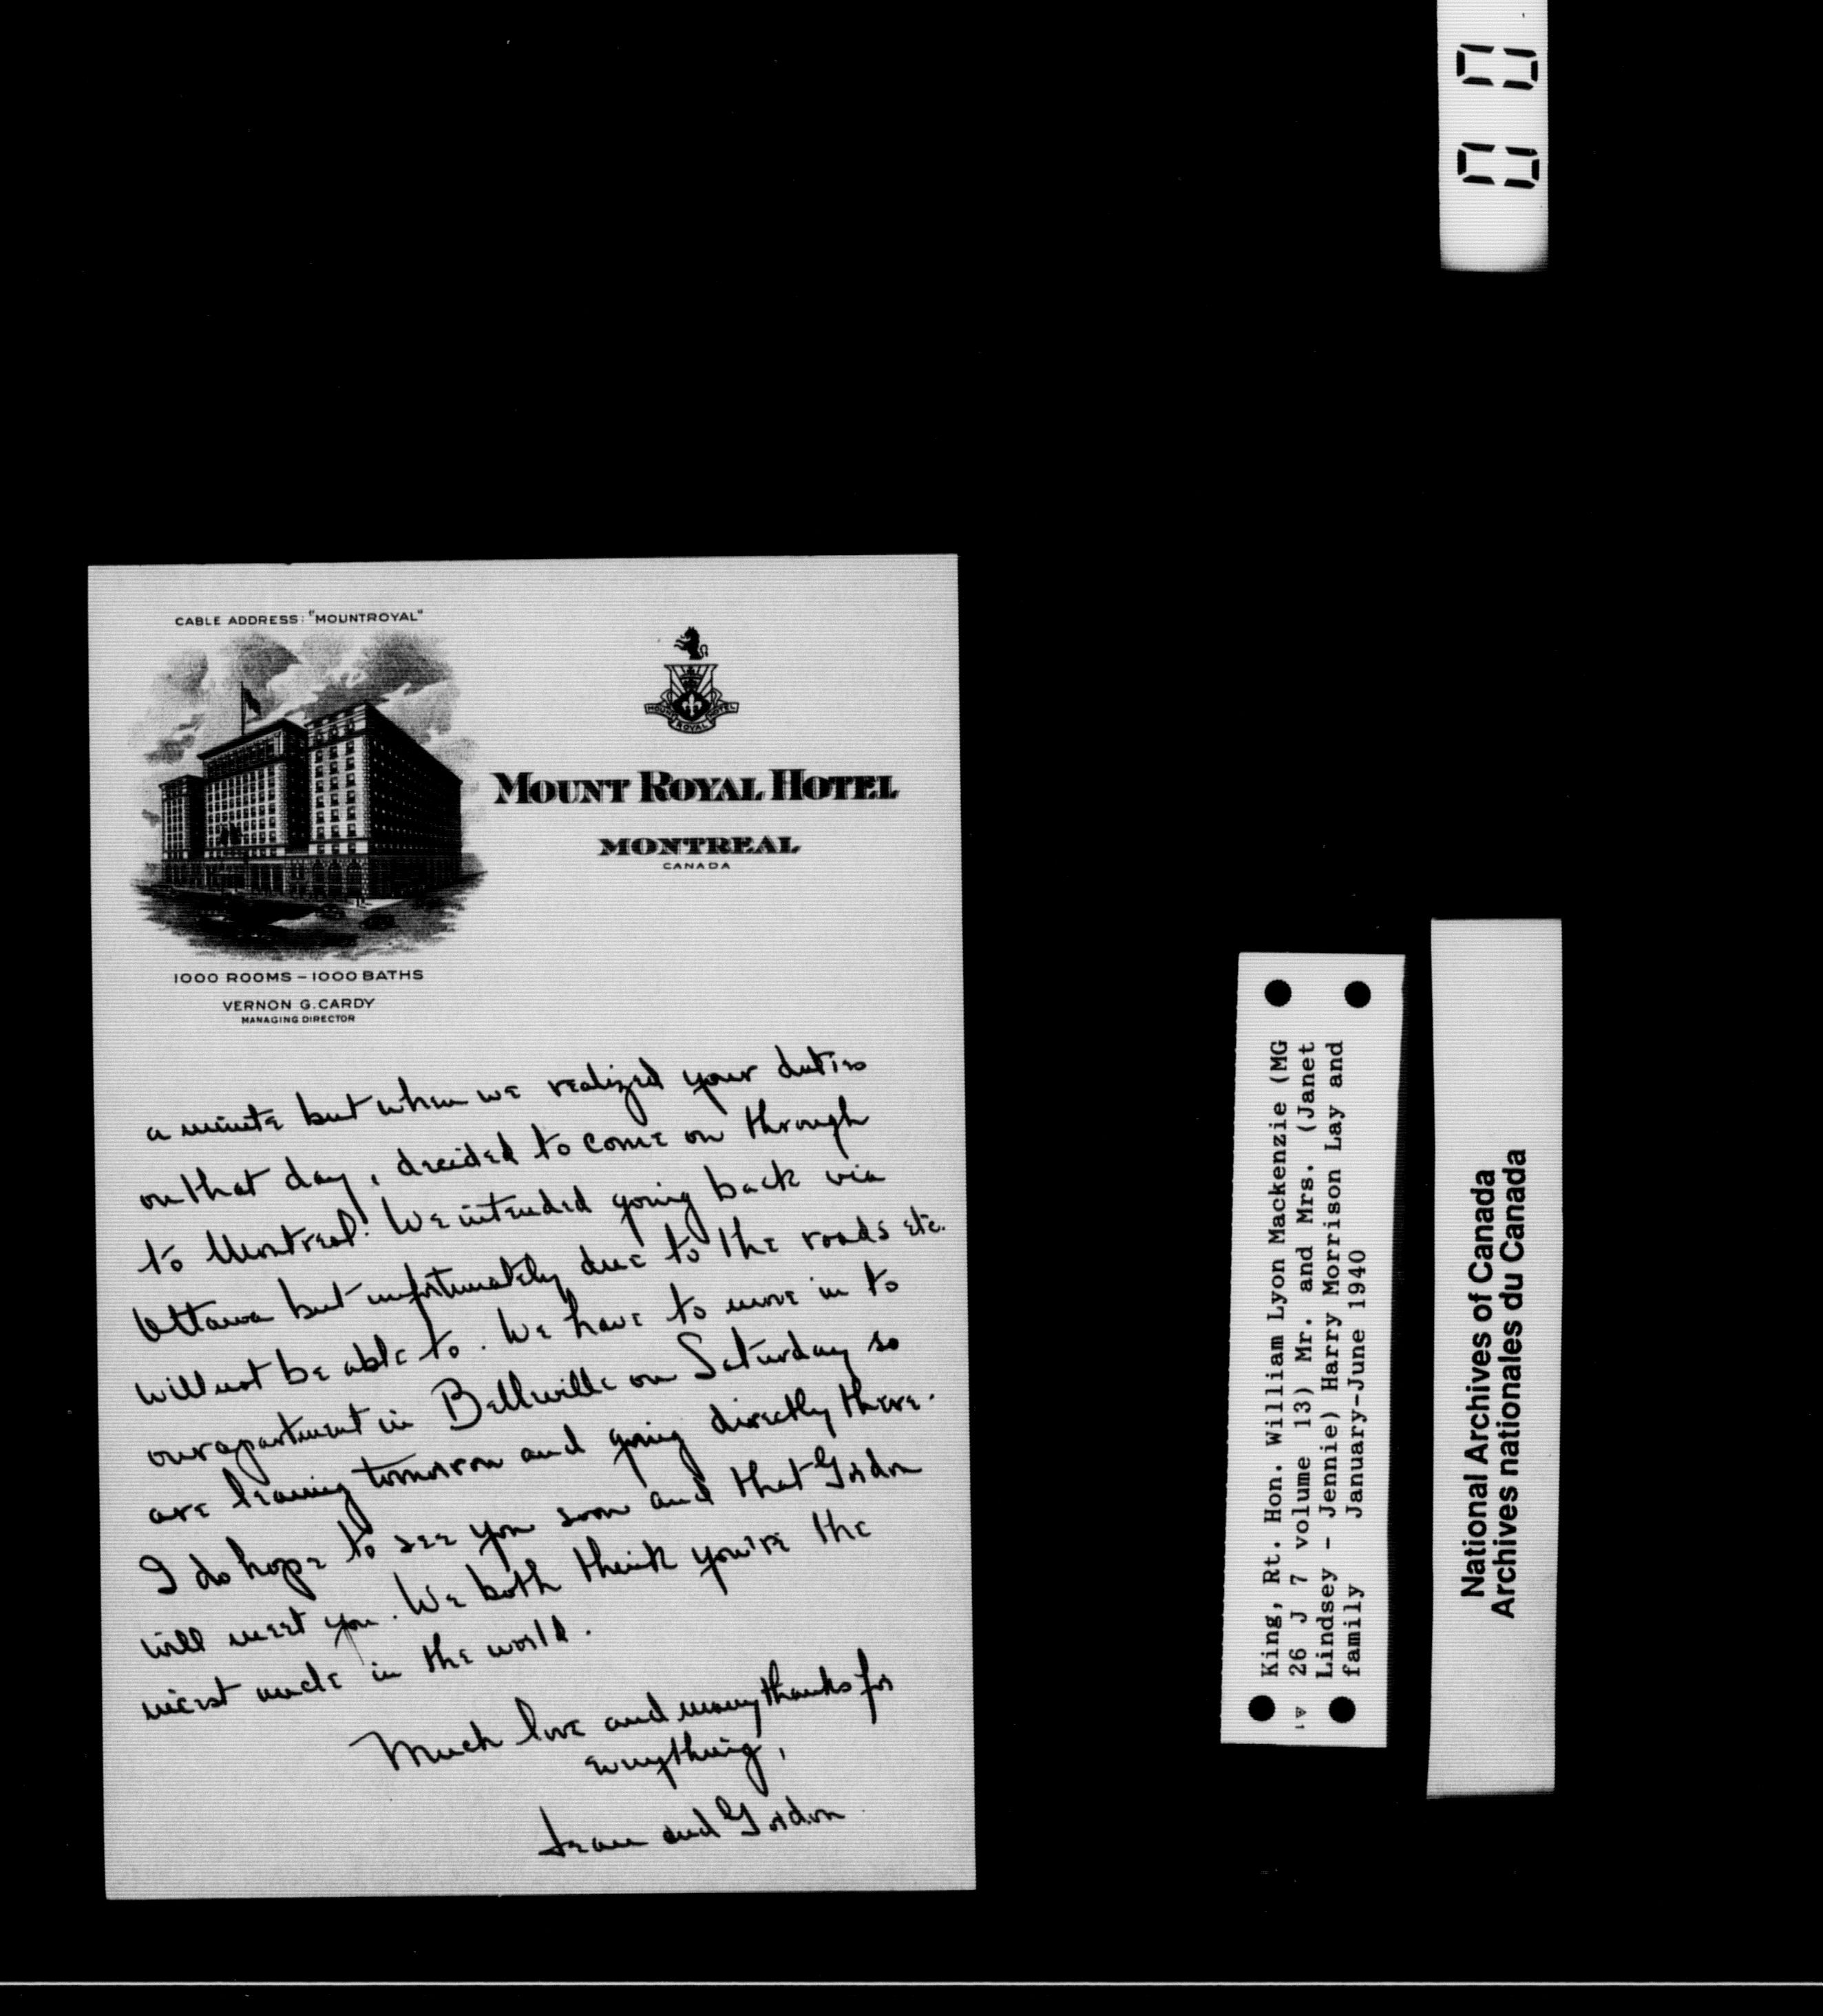 CABLE ADDRESS: "MOUNTROYAL"
MOUNT ROYAL HOTEL
MOUNT ROYAL HOTEL
MONTREAL
CANADA
1000 ROOMS – 1000 BATHS
VERNON G. CARDY
MANAGING DIRECTOR
a minute but when we realized your duties
on that day, decided to come on through
to Montreal. We intended going back via
Ottawa but unfortunately due to the roads etc.
will not be able to. We have to move in to
our apartment in Bellville on Saturday so
are leaving tomorrow and going directly there.
I do hope to see you soon and that Gordon
will meet you. We both think you're the
nicest uncle in the world.
Much love and many thanks for
everything,
Jean and Gordon
King, Rt. Hon. William Lyon Mackenzie (MG
26 J 7 volume 13) Mr. and Mrs. (Janet
Lindsey - Jennie) Harry Morrison Lay and
family January-June 1940
National Archives of Canada
Archives nationales du Canada